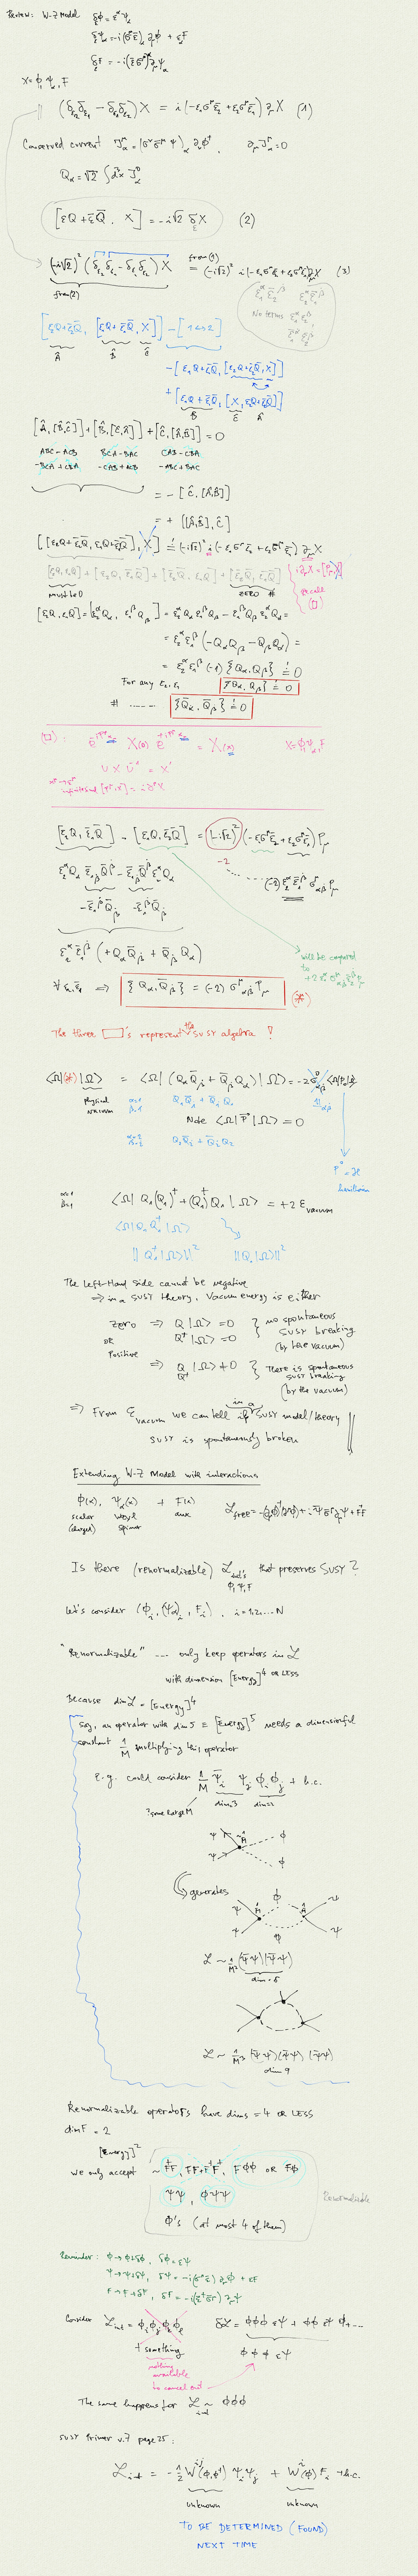 Review: W-Z Model δ_ε φ = ε^α ψ_α
δ_ε ψ_α = -i(σ^μ ε̄)_α ∂_μ φ + ε_α F
δ_ε F = -i(ε̄ σ̄^μ)^α ∂_μ ψ_α
X = φ, ψ_α, F
(δ_ε2 δ_ε1 - δ_ε1 δ_ε2) X = i(-ε₁σ^μ ε̄₂ + ε₂σ^μ ε̄₁) ∂_μ X (1)
Conserved current J^μ_α = (σ^ν σ̄^μ ψ)_α ∂_ν φ^†, ∂_μ J^μ_α = 0
Q_α = √2 ∫ d³x J^0_α
[εQ + ε̄Q̄, X] = -i√2 δ_ε X (2)
(-i√2)² (δ_ε2 δ_ε1 - δ_ε1 δ_ε2) X = (-i√2)² i(-ε₁σ^μ ε̄₂ + ε₂σ^μ ε̄₁) ∂_μ X (3)
from (2)
from (1)
No terms
[ε₂Q + ε̄₂Q̄, [ε₁Q + ε̄₁Q̄, X]] - [1 ↔ 2]
Â B̂ Ĉ
- [ε₁Q + ε̄₁Q̄, [ε₂Q + ε̄₂Q̄, X]]
+ [ε₁Q + ε̄₁Q̄, [X, ε₂Q + ε̄₂Q̄]]
B̂ Ĉ Â
[Â, [B̂, Ĉ]] + [B̂, [Ĉ, Â]] + [Ĉ, [Â, B̂]] = 0
ABC - ACB BCA - BAC CAB - CBA
- BCA + CBA - CAB + ACB - ABC + BAC
= - [Ĉ, [Â, B̂]]
= + [[Â, B̂], Ĉ]
[[ε₂Q + ε̄₂Q̄, ε₁Q + ε̄₁Q̄], X] = (-i√2)² i(-ε₁σ^μ ε̄₂ + ε₂σ^μ ε̄₁) ∂_μ X
i∂_μ X = [P_μ, X]
recall (□)
[ε₂Q, ε₁Q] + [ε₂Q, ε̄₁Q̄] + [ε̄₂Q̄, ε₁Q] + [ε̄₂Q̄, ε̄₁Q̄]
must be 0 zero #
[ε₂Q, ε₁Q] = [ε₂^α Q_α, ε₁^β Q_β] = ε₂^α Q_α ε₁^β Q_β - ε₁^β Q_β ε₂^α Q_α =
= ε₂^α ε₁^β (-Q_α Q_β - Q_β Q_α) =
= ε₂^α ε₁^β (-1) {Q_α, Q_β} = 0
For any ε₂, ε₁ {Q_α, Q_β} = 0
# ...... {Q̄_α̇, Q̄_β̇} = 0
X = φ, ψ_α, F
U X U^-1 = X'
[ε₂Q, ε̄₁Q̄] - [ε₁Q, ε̄₂Q̄] = (-i√2)² (-ε₁σ^μ ε̄₂ + ε₂σ^μ ε̄₁) P_μ
-2
(-2) ε₂^α ε̄₁^β̇ σ^μ_αβ̇ P_μ
ε₂^α ε̄₁^β̇ (+Q_α Q̄_β̇ + Q̄_β̇ Q_α)
will be compared
to
∀ ε₂, ε̄₁ ⇒ {Q_α, Q̄_β̇} = (-2) σ^μ_αβ̇ P_μ (*)
The three □'s represent the SUSY algebra!
⟨Ω|(*)|Ω⟩ = ⟨Ω|(Q_α Q̄_β̇ + Q̄_β̇ Q_α)|Ω⟩ = -2σ^0_αβ̇ ⟨Ω|P_0|Ω⟩
physical
vacuum
α=1
β̇=1
Q₁Q̄₁ + Q̄₁Q₁
Note ⟨Ω|P⃗|Ω⟩ = 0
α=2
β̇=2
Q₂Q̄₂ + Q̄₂Q₂
P^0 = ℋ
hamiltonian
α=1
β̇=1
⟨Ω|Q₁(Q₁)^† + (Q₁)^† Q₁|Ω⟩ = +2 E_vacuum
⟨Ω|Q₁Q₁^†|Ω⟩
||Q₁^†|Ω⟩||² ||Q₁|Ω⟩||²
The left-Hand side cannot be negative
⇒ in a SUSY theory, vacuum energy is either
zero ⇒ Q|Ω⟩ = 0 } no spontaneous
OR Q^†|Ω⟩ = 0 SUSY breaking
(by the vacuum)
Positive
⇒ Q|Ω⟩ ≠ 0 } There is spontaneous
Q^† SUSY breaking
(by the vacuum)
⇒ From E_vacuum we can tell if in a SUSY model/theory
SUSY is spontaneously broken
Extending W-Z Model with interactions
φ(x), ψ_α(x) + F(x) ℒ_free = -(∂_μφ)^†(∂^μφ) + iψ̄ σ̄^μ ∂_μ ψ + F^†F
scalar Weyl aux
spinor
Is there (renormalizable) ℒ_int's that preserves SUSY?
φ, ψ, F
Let's consider (φ_i, (ψ_α)_i, F_i), i = 1,2,...N
"Renormalizable" --- only keep operators in ℒ
with dimension [Energy]^4 OR LESS
Because dim ℒ = [Energy]^4
Say, an operator with dim 5 = [Energy]^5 needs a dimensionful
constant 1/M multiplying this operator
E.g. could consider 1/M ψ̄_i ψ_j φ_i φ_j + h.c.
some large M dim=3 dim=2
ψ 1/M φ
ψ φ
generates
ψ 1/M φ 1/M ψ
ψ φ ψ
ℒ ~ 1/M² (ψ̄ψ)(ψ̄ψ)
dim = 6
ℒ ~ 1/M⁵ (ψ̄ψ)(ψ̄ψ)(ψ̄ψ)
dim 9
Renormalizable operators have dims = 4 OR LESS
dim F = 2
[Energy]²
we only accept ~ F^†F, FF + F^†F^†, Fφφ OR Fφ
ψψ, φψψ
φ's (at most 4 of them)
Renormalizable
Reminder: φ → φ+δφ, δφ = εψ
ψ → ψ+δψ, δψ = -i(σ^μ ε̄)∂_μ φ + εF
F → F+δF, δF = -i(ε^† σ̄^μ)∂_μ ψ
Consider ℒ_int = φ_i φ_j φ_k φ_l δℒ = φφφ εψ + φφ εψ φ + ...
+ something
nothing
available
to cancel out
φφφ εψ
The same happens for ℒ_int ~ φφφ
SUSY Primer v.7 page 25:
ℒ_int = -1/2 W^ij(φ, φ^†) ψ_i ψ_j + W^i(φ) F_i + h.c.
unknown unknown
TO BE DETERMINED (FOUND)
NEXT TIME